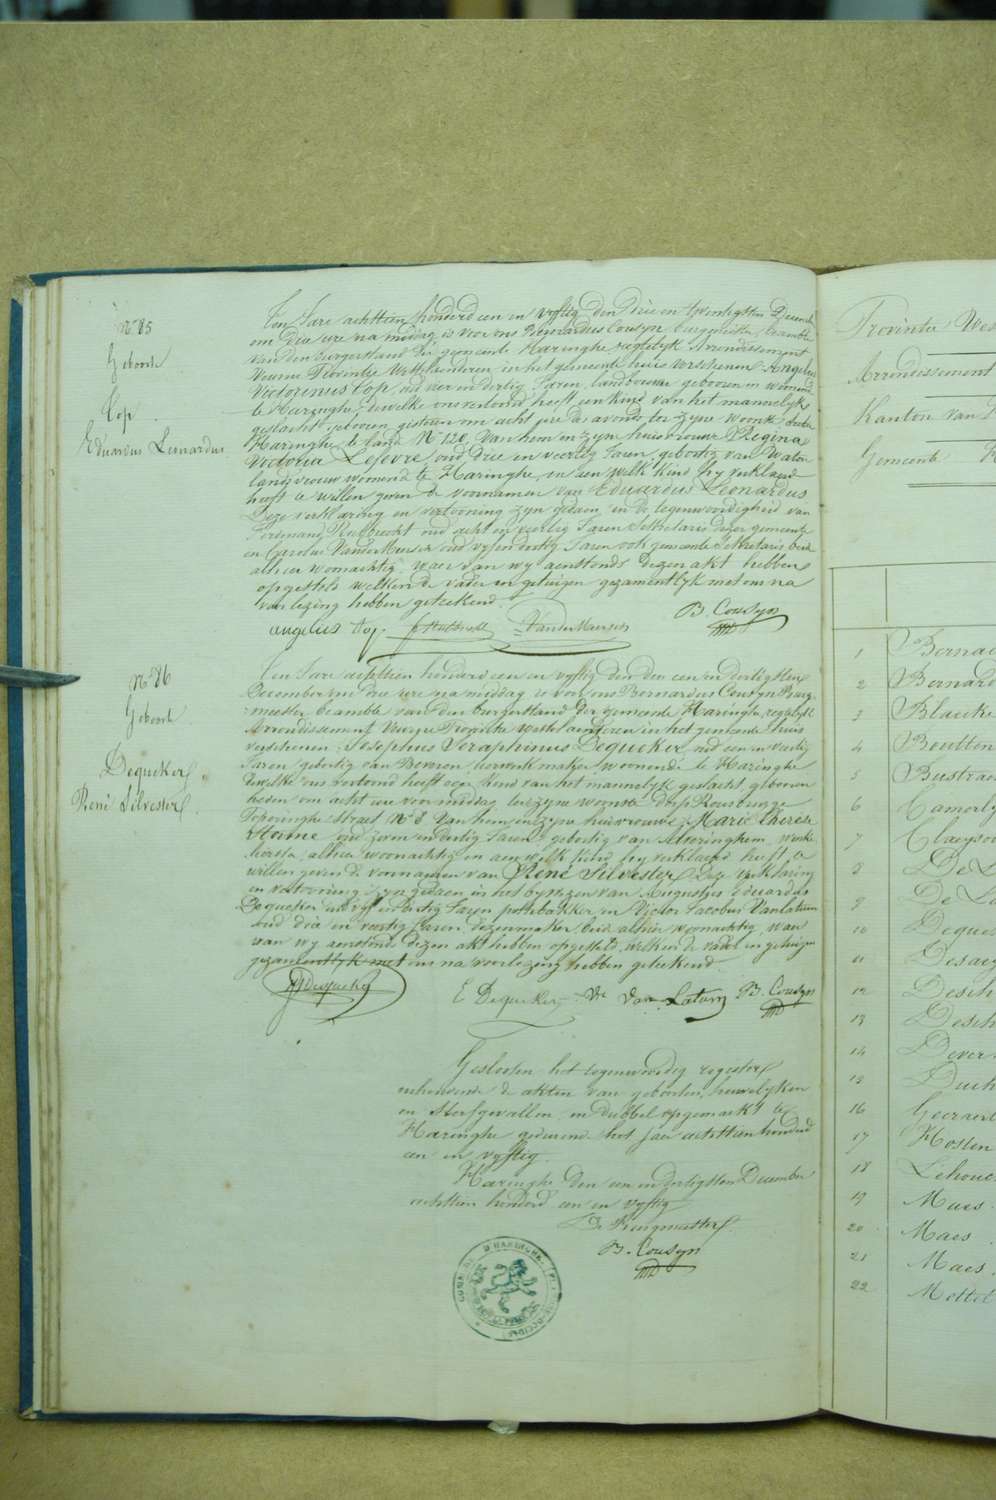 N° 85
Geboorte
Cop
Eduardus Leonardus
Ten Jare achttien honderd een en vyftig den Drie en twintigsten December
om drie ure na middag, is voor ons Bernardus Cousyn burgemeester, beambte
van den burgerstand der gemeente Haringhe regtelyk Arrondissement
Veurne Provintie Westvlaenderen, in het gemeente huis verschenen Angelus
Victorinus Cop, oud vier en dertig Jaren, landbouwer geboren en woonende
te Haringhe, dewelke ons vertoond heeft een kind van het mannelyk
geslacht, geboren gisteren om acht ure des avonds ten zyne woonst, binnen
Haringhe te land N° 120, van hem en zyne huisvrouw Regina
Victoria Lefevre, oud Drie en veertig Jaren, geboortig van Watou
landbouwen woonend te Haringhe, en aen welk kind hy verklaerd
heeft te willen geven de voornamen van Eduardus Leonardus
Deze verklaring en vertooning zyn gedaen in de tegenwoordigheid van
Ferdinand Rubbrecht oud acht en veertig Jaren Sekretaris dezer gemeente
en Carolus Vandermersch oud vyf en dertig Jaren ook gemeente Sekretaris beide
alhier woonachtig, waer van wy aenstonds dezen akt hebben
opgesteld welken de vader en getuigen gezamentlyk met ons na
voorlezing hebben geteekend.
angelus Cop. Rubbrecht VanderMaersch B Cousyn
N° 86
Geboorte
Dequeker
René Silvester
Ten Jare achttien honderd een en vyftig den een en dertigsten
December om drie ure na middag is voor ons Bernardus Cousyn Burge-
meester beambte van den burgerstand der gemeente Haringhe, regtelyk
Arrondissement Veurne Provintie Westvlaenderen in het gemeente huis
verschenen Josephus Seraphinus Dequeker oud een en veertig
Jaren geboortig van Beveren, werkmaker woonende te Haringhe
dewelke ons vertoond heeft een kind van het mannelyk geslacht geboren
heden om acht ure voor middag ten zyne woonst dorp Rousbrugge
Poperinghe straet N° 8 van hem en zyne huisvrouwe Marie Therese
Home oud zeven en dertig Jaren geboortig van Alveringhem, werk-
alhier woonachtig en aen welk kind hy verklaerd heeft te
willen geven de voornamen van René Silvester deze verklaring
en vertooning zyn gedaen in het bywezen van Augustus Eduardus
Dequeker oud vyf en dertig Jaren pottebakker en Victor Jacobus Vanlatum
oud drie en veertig Jaren, beide alhier woonachtig, waer
van wy aenstonds dezen akt hebben opgesteld, welken de vader en getuigen
gezamentlyk met ons na voorlezing hebben geteekend.
JS Dequeker E Dequeker Vr Van Latum B. Cousyn
Gesloten het tegenwoordig register
enhoudende de akten van geboorten, houwelyken
en sterfgevallen, in dubbel opgemaekt te
Haringhe gedurende het jaer achttien honderd
een en vyftig.
Haringhe den een en dertigsten December
achttien honderd een en vyftig
De Burgemeester
B. Cousyn
COMMUNE D'HARINGHE
Provintie Wes
Arrondissement
Kanton van
Gemeente
1 Bernae
2 Bernard
3 Blancke
4 Boutten
5 Bustrae
6 Camerly
7 Claeyso
8 De
9 De La
10 Deques
11 Desaeg
12 Desch
13 Desch
14 Dever
15 Duch
16 Geeraert
17 Hosten
18 Lehouc
19 Maes
20 Maes
21 Maes
22 Mettet